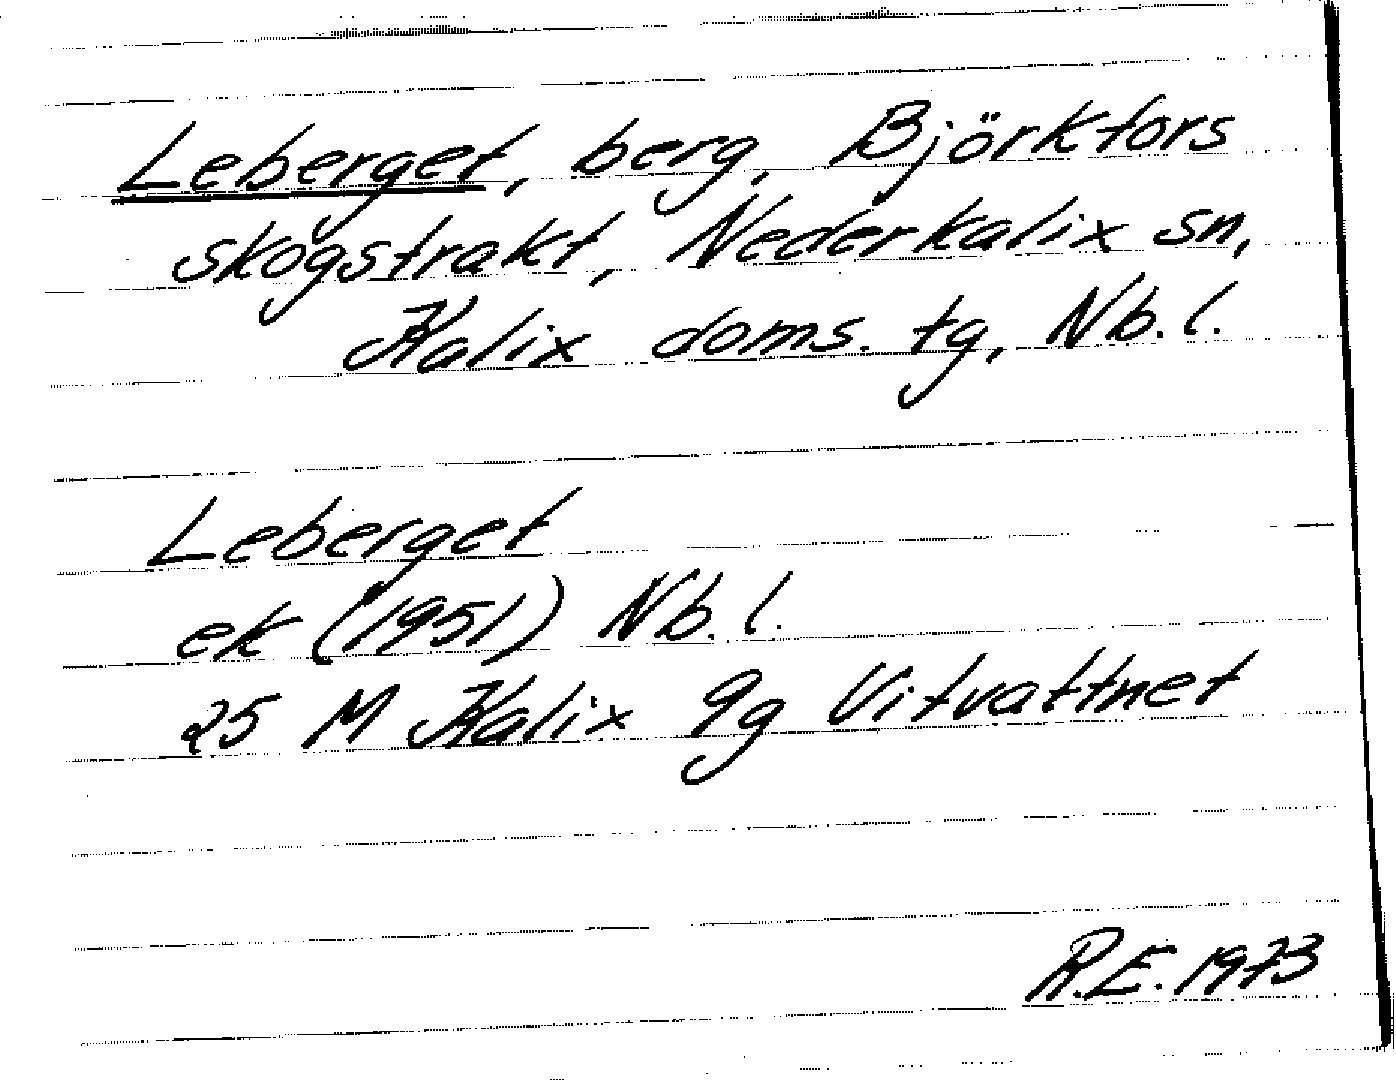 Leberget, berg, Björkfors
skogstrakt, Nederkalix sn,
Kalix doms. tg, Nb. l.
Leberget
ek (1951) Nb. l.
25 M Kalix 9g Vitvattnet
R.E. 1973